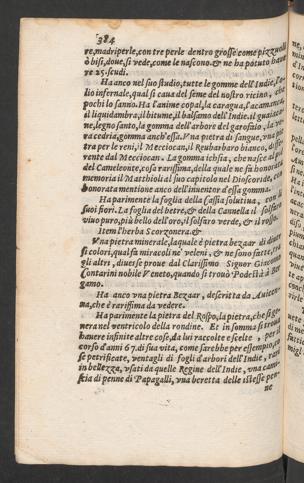 384
re, madriperle, con tre perle dentro grosse come pizzuoli
ò bisi, doue, si vede, come le nascono. & ne ha potuto haue
re 25. scudi.
Ha anco nel suo studio, tutte le gomme dell'Indie, l'a-
lio infernale, qual si caua del seme del nostro ricino, che
pochi lo sanno. Ha l'anime copal, la caragna, l'acamaca,
il liquidambra, il bitume, il balsamo dell'Indie. il guaiaco
ne, legno santo, la gomma dell'arbore del garofano, la ve-
ra cedria, gomma anch'essa. Vna pietra di sangue, vna pie
tra per le reni, il Meccioacan, il Reubarbaro bianco, diffe
rente dal Meccioacan. La gomma ichsia, che nasce al piè
del Cameleonte, cosa rarissima, della quale ne fà honorata
memoria il Matthioli al suo capitolo nel Dioscoride, con
honorata mentione anco dell'inuentor d'essa gomma.
Ha parimente la foglia della Cassia solutiua, con i
suoi fiori. La foglia del betre, & della Cannella il solfaro
viuo puro, più bello dell'oro, il solfaro verde, & il rosso.
Item l'herba Scorzonera. &
Vna pietra minerale, laquale è pietra bezaar di diuer
si colori, qual fà miracoli nè veleni, & ne sono fatte, tra
gli altri, diuerse proue dal Clarissimo Signor Giacomo
Contarini nobile Veneto, quando si trouò Podestà à Ber
gamo.
Ha anco vna pietra Bezaar, descritta da Auicen-
na, che è rarissima da vedere.
Ha parimente la pietra del Rospo, la pietra, che si ge-
nera nel ventricolo della rondine. Et in somma si troua
hauere infinite altre cose, da lui raccolte e scelte, per il
corso d'anni 67. di sua vita, come sarebbe per essempio, co
se petrificate, ventagli di fogli d'arbori dell'Indie, rari
in bellezza, vsati da quelle Regine dell'Indie, vna cami
scia di penne di Papagalli, vna beretta delle istesse pen-
ne